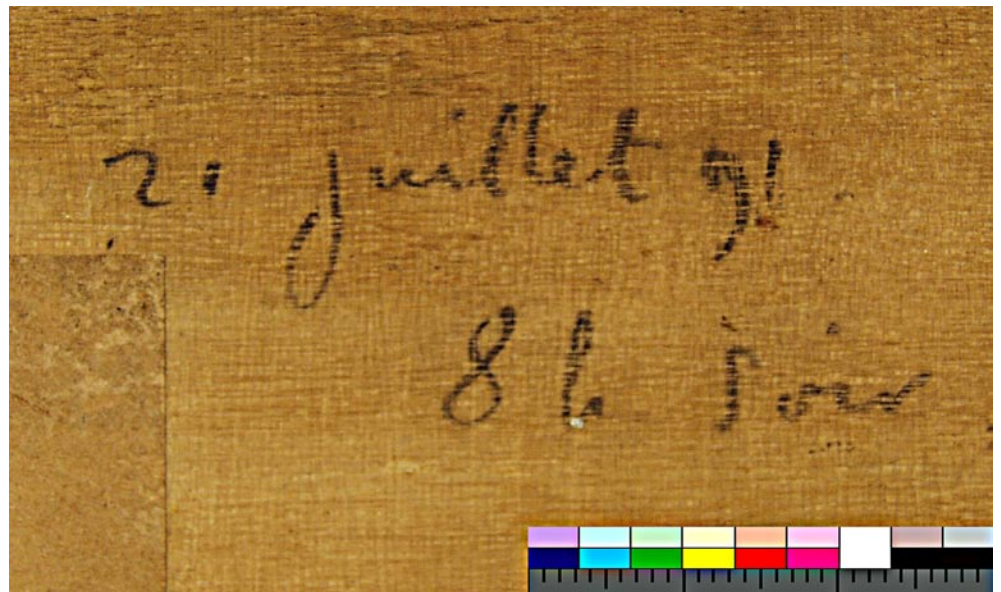 21 juillet 91
8 h soir